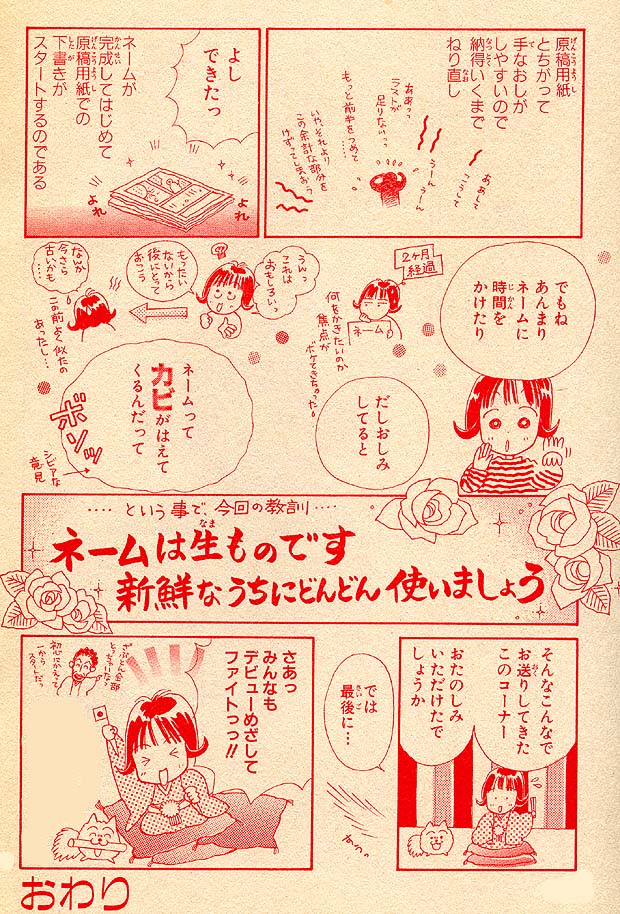 原稿用紙
とちがって
手なおしが
しやすいので
納得いくまで
ねり直し
ああして
こうして
うーん
うーん
ああっ
ラストが
足りないっ
もっと前半をつめて
……
いや、それより
この余計な部分を
けずってしまおう
よし
できたっ
よれ
よれ
ネームが
完成してはじめて
原稿用紙での
下書きが
スタートするのである
でもね
あんまり
ネームに
時間を
かけたり
2ヶ月
経過
ネーム
何をかきたいのか
焦点が
ボケてきちゃった。
うんっ
これは
おもしろいっ
もったい
ないから
後にとって
おこう
なんか
今さら
古いかも…
この前よく似たの
あったし…
だしおしみ
してると
ネームって
カビがはえて
くるんだって
ボソッ
シビアな
意見
‥‥という事で、今回の教訓‥‥
ネームは生ものです
新鮮なうちにどんどん使いましょう
そんなこんなで
お送りしてきた
このコーナー
おたのしみ
いただけたで
しょうか
では
最後に…
さあっ
みんなも
デビューめざして
ファイトっっ!!
ざぶとん全部
とっちゃいなっ
初心にかえって
一から
スタートだっ
おわり